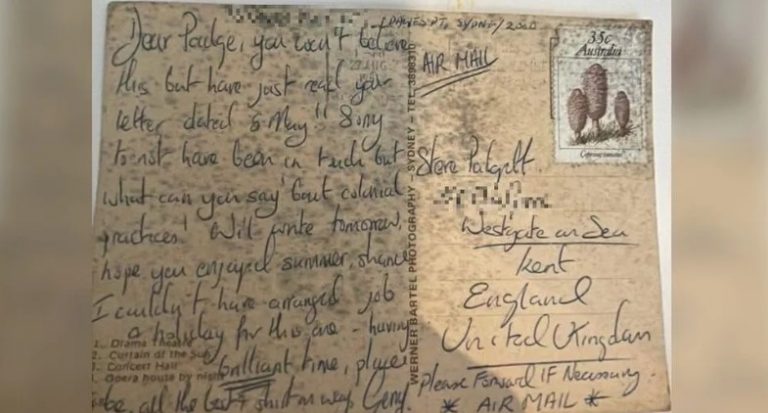 DAWES PT, SYDNEY 2000
Dear Padge, you won't believe
this but have just read your
letter dated 5 May!! Sorry
to not have been in touch but
what can you say 'bout colonial
practices! Will write tomorrow,
hope you enjoyed summer, shame
I couldn't have arranged job
a holiday for this one - having
brilliant time, player
be, all the best
1. Drama Theatre
2. Curtain of the Sun
3. Concert Hall
4. Opera house by night
WERNER BARTEL PHOTOGRAPHY – SYDNEY – TEL.
AIR MAIL
35c
Australia
Steve Padgett
Westgate on Sea
Kent
England
United Kingdom
Please Forward IF Necessary.
* AIR MAIL *